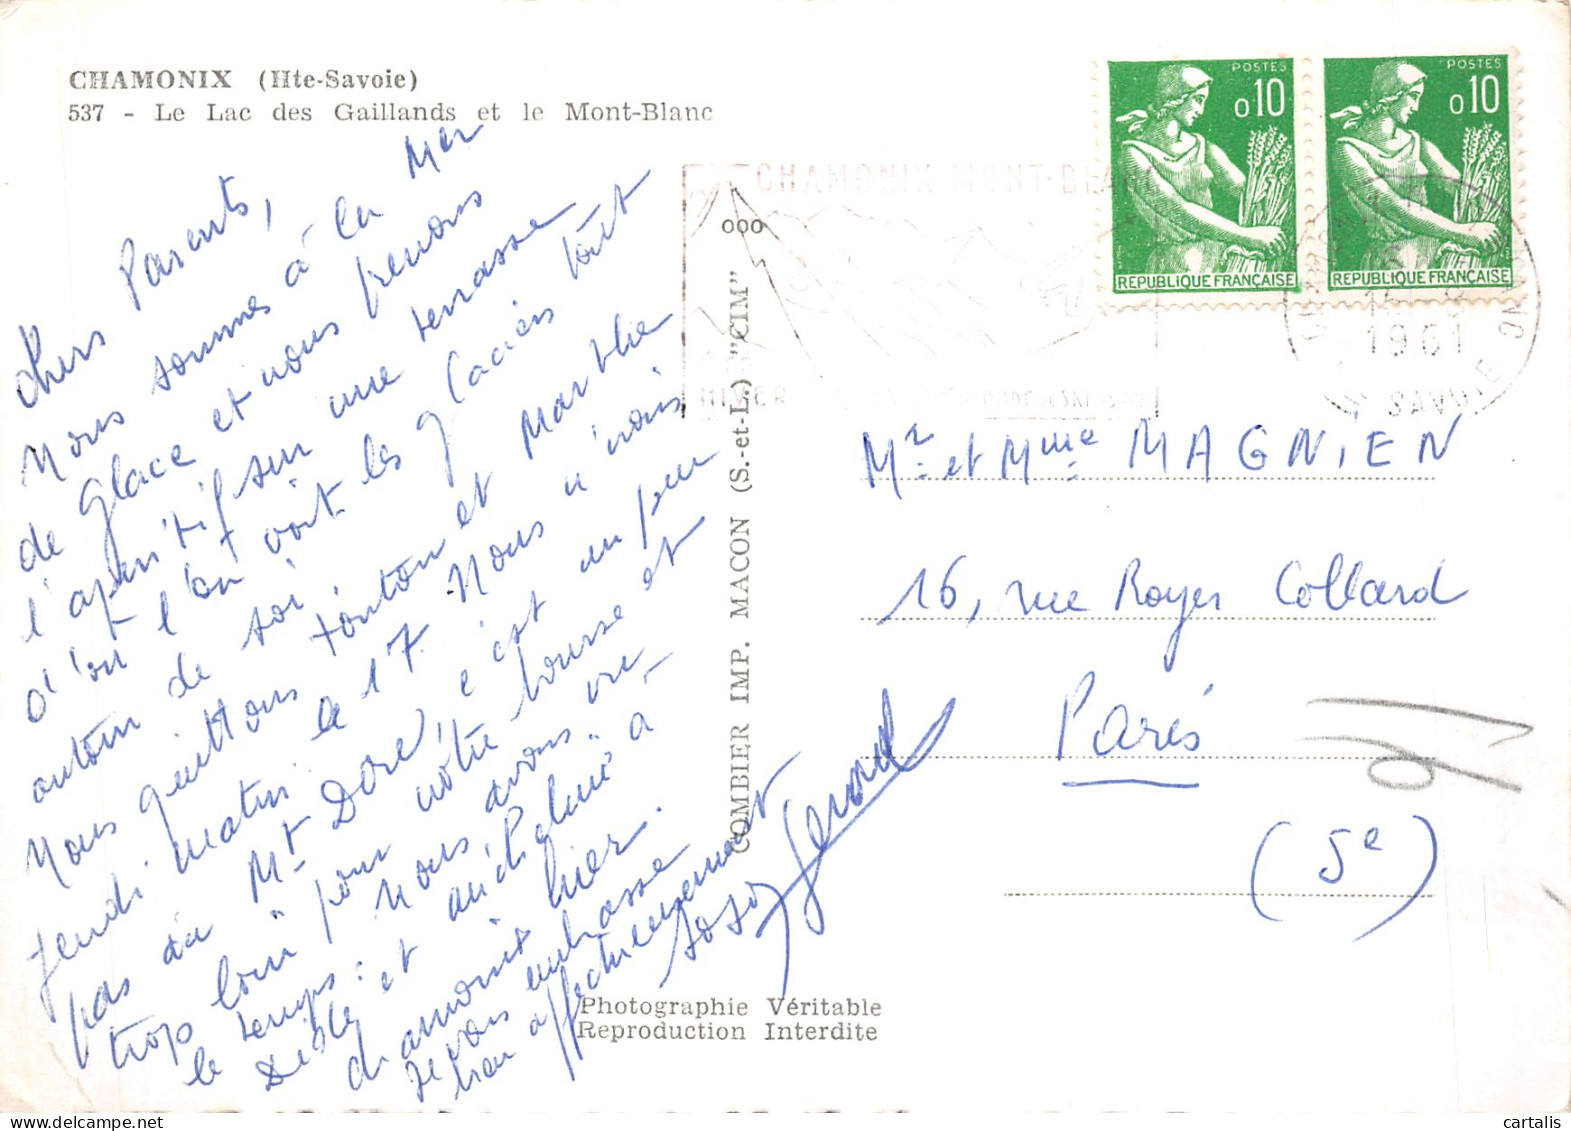 CHAMONIX (Hte-Savoie)
537 - Le Lac des Gaillands et le Mont-Blanc
Chers Parents,
Nous sommes à la Mer
de Glace et nous prenons
l'apéritif sur une terrasse
d'où l'on voit les glaciers tout
autour de soi.
Nous quittons tonton et Marthe
jeudi matin le 17. Nous n'irons
pas au Mt Dore, c'est un peu
trop loin pour notre bourse et
le temps. Nous avons vu
Dédé et
chamonix hier.
Je vous embrasse
bien affectueusement
Gerard
COMBIER IMP. MACON (S.-et-L.) "CIM"
Photographie Véritable
Reproduction Interdite
POSTES
0,10
REPUBLIQUE FRANÇAISE
POSTES
0,10
REPUBLIQUE FRANÇAISE
CHAMONIX MONT-BLANC
HIVER
1961
Mr et Mme MAGNIEN
16, rue Royer Collard
Paris
(5e)
cartalis